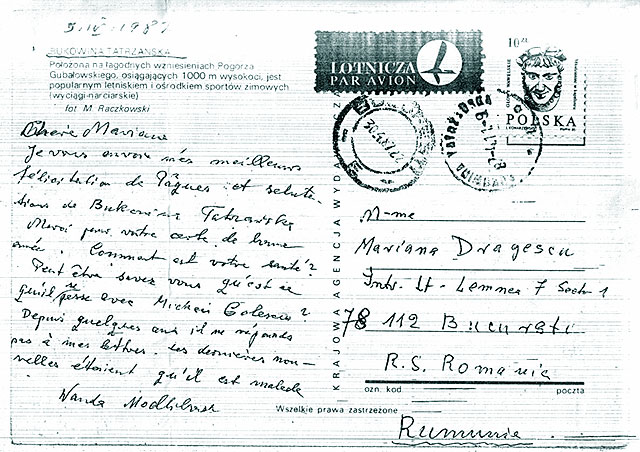 5.IV.1987
BUKOWINA TATRZAŃSKA
Położona na łagodnych wzniesieniach Pogórza
Gubałowskiego, osiągających 1000 m wysokości, jest
popularnym letniskiem i ośrodkiem sportów zimowych
(wyciągi narciarskie)
fot. M. Raczkowski
Chère Mariana
Je vous envoie mes meilleures
félicitation de Pâques et saluta-
tions de Bukowina Tatrzańska
Merci pour votre carte de bonne
année. Comment est votre santé?
Peut être savez vous qu'est ce
qu'il se passe avec Michai Golescu?
Depuis quelques ans il ne réponds
pas à mes lettres. Les dernières nou-
velles étaient qu'il est malade
Wanda
KRAJOWA AGENCJA WYDAWNICZA
LOTNICZA
PAR AVION
10 zł
POLSKA
M-me
Mariana Dragescu
Intr. Lt. Lemnea 7 Sect 1
78 112 Bucureşti
R.S. Romania
ozn. kod
poczta
Wszelkie prawa zastrzeżone
Rumunia